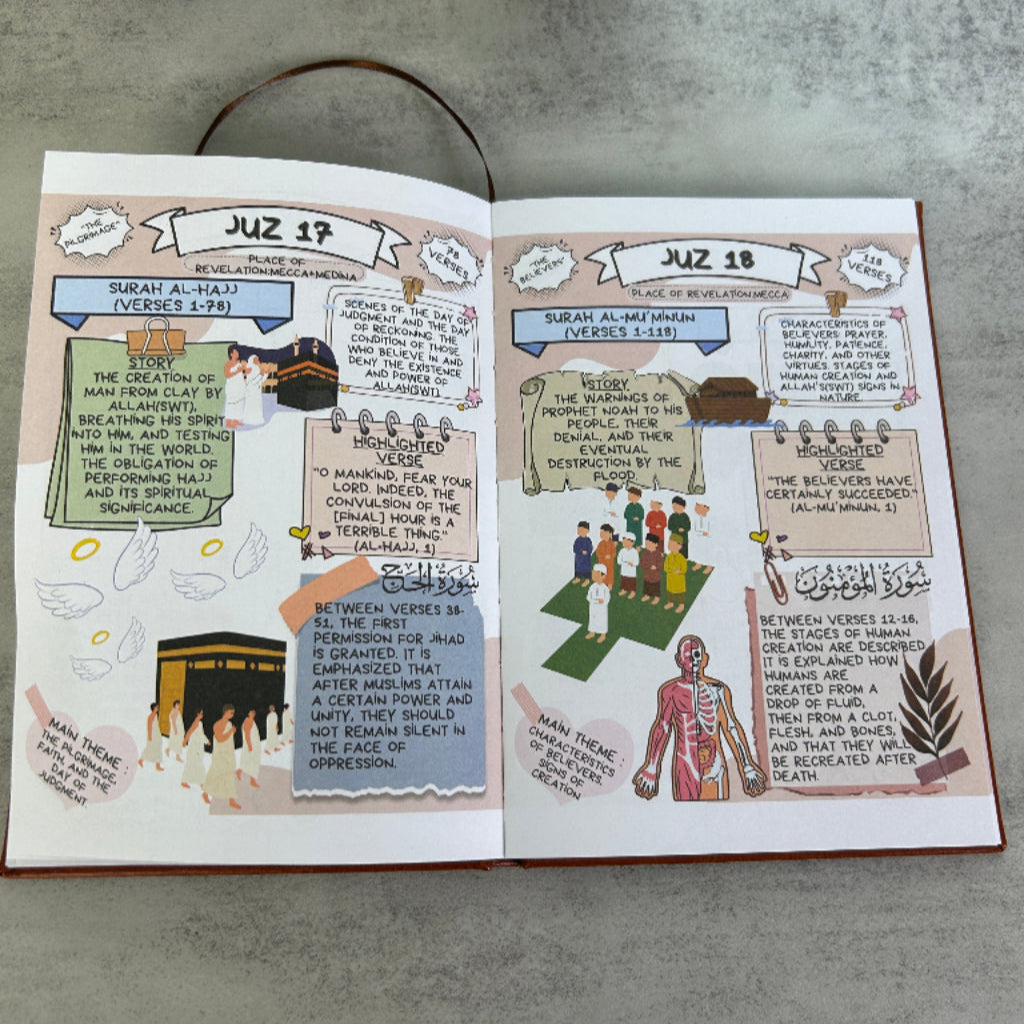 "THE
PILGRIMAGE"
JUZ 17
78
VERSES
PLACE OF
REVELATION:MECCA+MEDINA
SURAH AL-HAJJ
(VERSES 1-78)
SCENES OF THE DAY OF
JUDGMENT AND THE DAY
OF RECKONING. THE
CONDITION OF THOSE
WHO BELIEVE IN AND
DENY THE EXISTENCE
AND POWER OF
ALLAH(SWT).
STORY
THE CREATION OF
MAN FROM CLAY BY
ALLAH(SWT),
BREATHING HIS SPIRIT
INTO HIM, AND TESTING
HIM IN THE WORLD.
THE OBLIGATION OF
PERFORMING HAJJ
AND ITS SPIRITUAL
SIGNIFICANCE.
HIGHLIGHTED
VERSE
"O MANKIND, FEAR YOUR
LORD. INDEED, THE
CONVULSION OF THE
[FINAL] HOUR IS A
TERRIBLE THING."
(AL-HAJJ, 1)
سُورَةُ الحَجِّ
BETWEEN VERSES 38-
51, THE FIRST
PERMISSION FOR JIHAD
IS GRANTED. IT IS
EMPHASIZED THAT
AFTER MUSLIMS ATTAIN
A CERTAIN POWER AND
UNITY, THEY SHOULD
NOT REMAIN SILENT IN
THE FACE OF
OPPRESSION.
MAIN THEME :
THE PILGRIMAGE,
FAITH, AND THE
DAY OF
JUDGMENT.
"THE
BELIEVERS"
JUZ 18
118
VERSES
PLACE OF REVELATION:MECCA
SURAH AL-MU'MINUN
(VERSES 1-118)
CHARACTERISTICS OF
BELIEVERS: PRAYER,
HUMILITY, PATIENCE,
CHARITY, AND OTHER
VIRTUES. STAGES OF
HUMAN CREATION AND
ALLAH'S(SWT) SIGNS IN
NATURE.
STORY
THE WARNINGS OF
PROPHET NOAH TO HIS
PEOPLE, THEIR
DENIAL, AND THEIR
EVENTUAL
DESTRUCTION BY THE
FLOOD.
HIGHLIGHTED
VERSE
"THE BELIEVERS HAVE
CERTAINLY SUCCEEDED."
(AL-MU'MINUN, 1)
سُورَةُ المُؤْمِنُونَ
BETWEEN VERSES 12-16,
THE STAGES OF HUMAN
CREATION ARE DESCRIBED.
IT IS EXPLAINED HOW
HUMANS ARE
CREATED FROM A
DROP OF FLUID,
THEN FROM A CLOT,
FLESH, AND BONES,
AND THAT THEY WILL
BE RECREATED AFTER
DEATH.
MAIN THEME :
CHARACTERISTICS
OF BELIEVERS,
SIGNS OF
CREATION